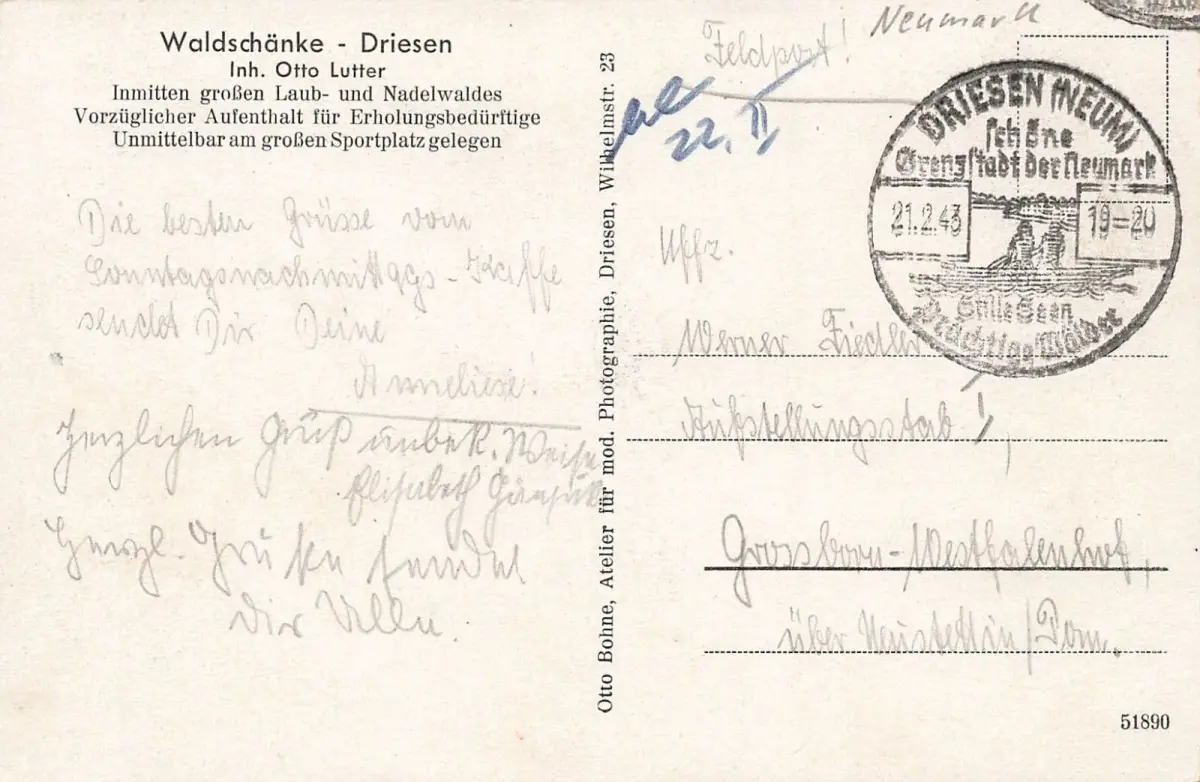 Waldschänke - Driesen
Inh. Otto Lutter
Inmitten großen Laub- und Nadelwaldes
Vorzüglicher Aufenthalt für Erholungsbedürftige
Unmittelbar am großen Sportplatz gelegen
Die besten Grüsse vom
Sonntagnachmittags-Kaffe
sendet Dir Deine
Anneliese!
Herzlichen Gruß unbek. Weise
Elisabeth
Herzl. Grüße sendet
Dir Ulla.
Otto Bohne, Atelier für mod. Photographie, Driesen, Wilhelmstr. 23
Feldpost!
Neumark
22. II
DRIESEN (NEUM)
schöne
Grenzstadt der Neumark
21.2.43
19-20
Stille Seen
Prächtige Wälder
Uffz.
Werner Fiedler
Aufstellungsstab!
Grossborn-Westfalenhof,
über Neustettin/Pom.
51890